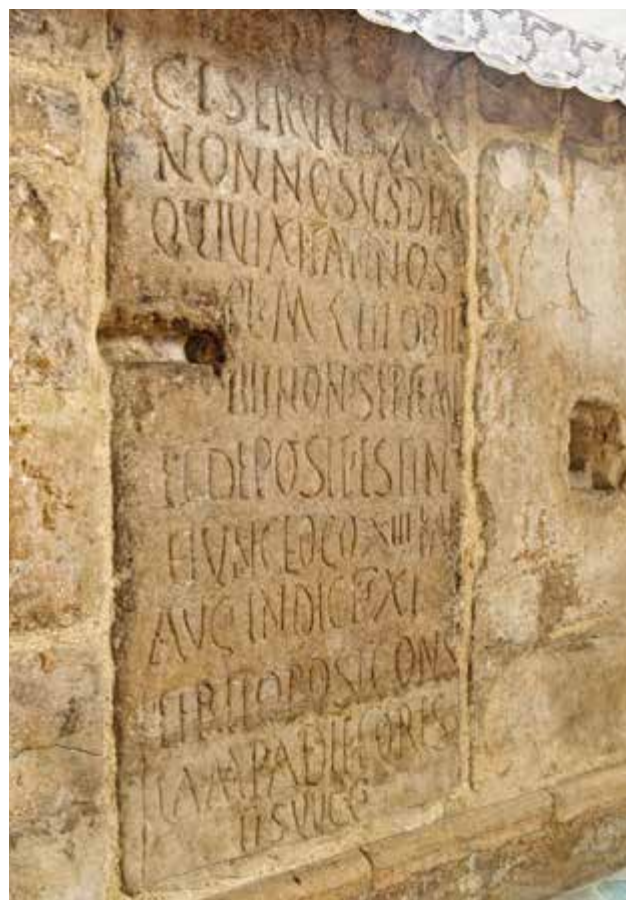 SERVUS
NONNOSUS DIAC
QUI VIXIT ANNOS
PL M CIII OBIIT
IIII NON SEPTEM
ET DEPOSIT EST IN
LOCO XIII KAL
AUG INDICT XI
POST CONS
LAMPADI ET ORES
TIS VVCC